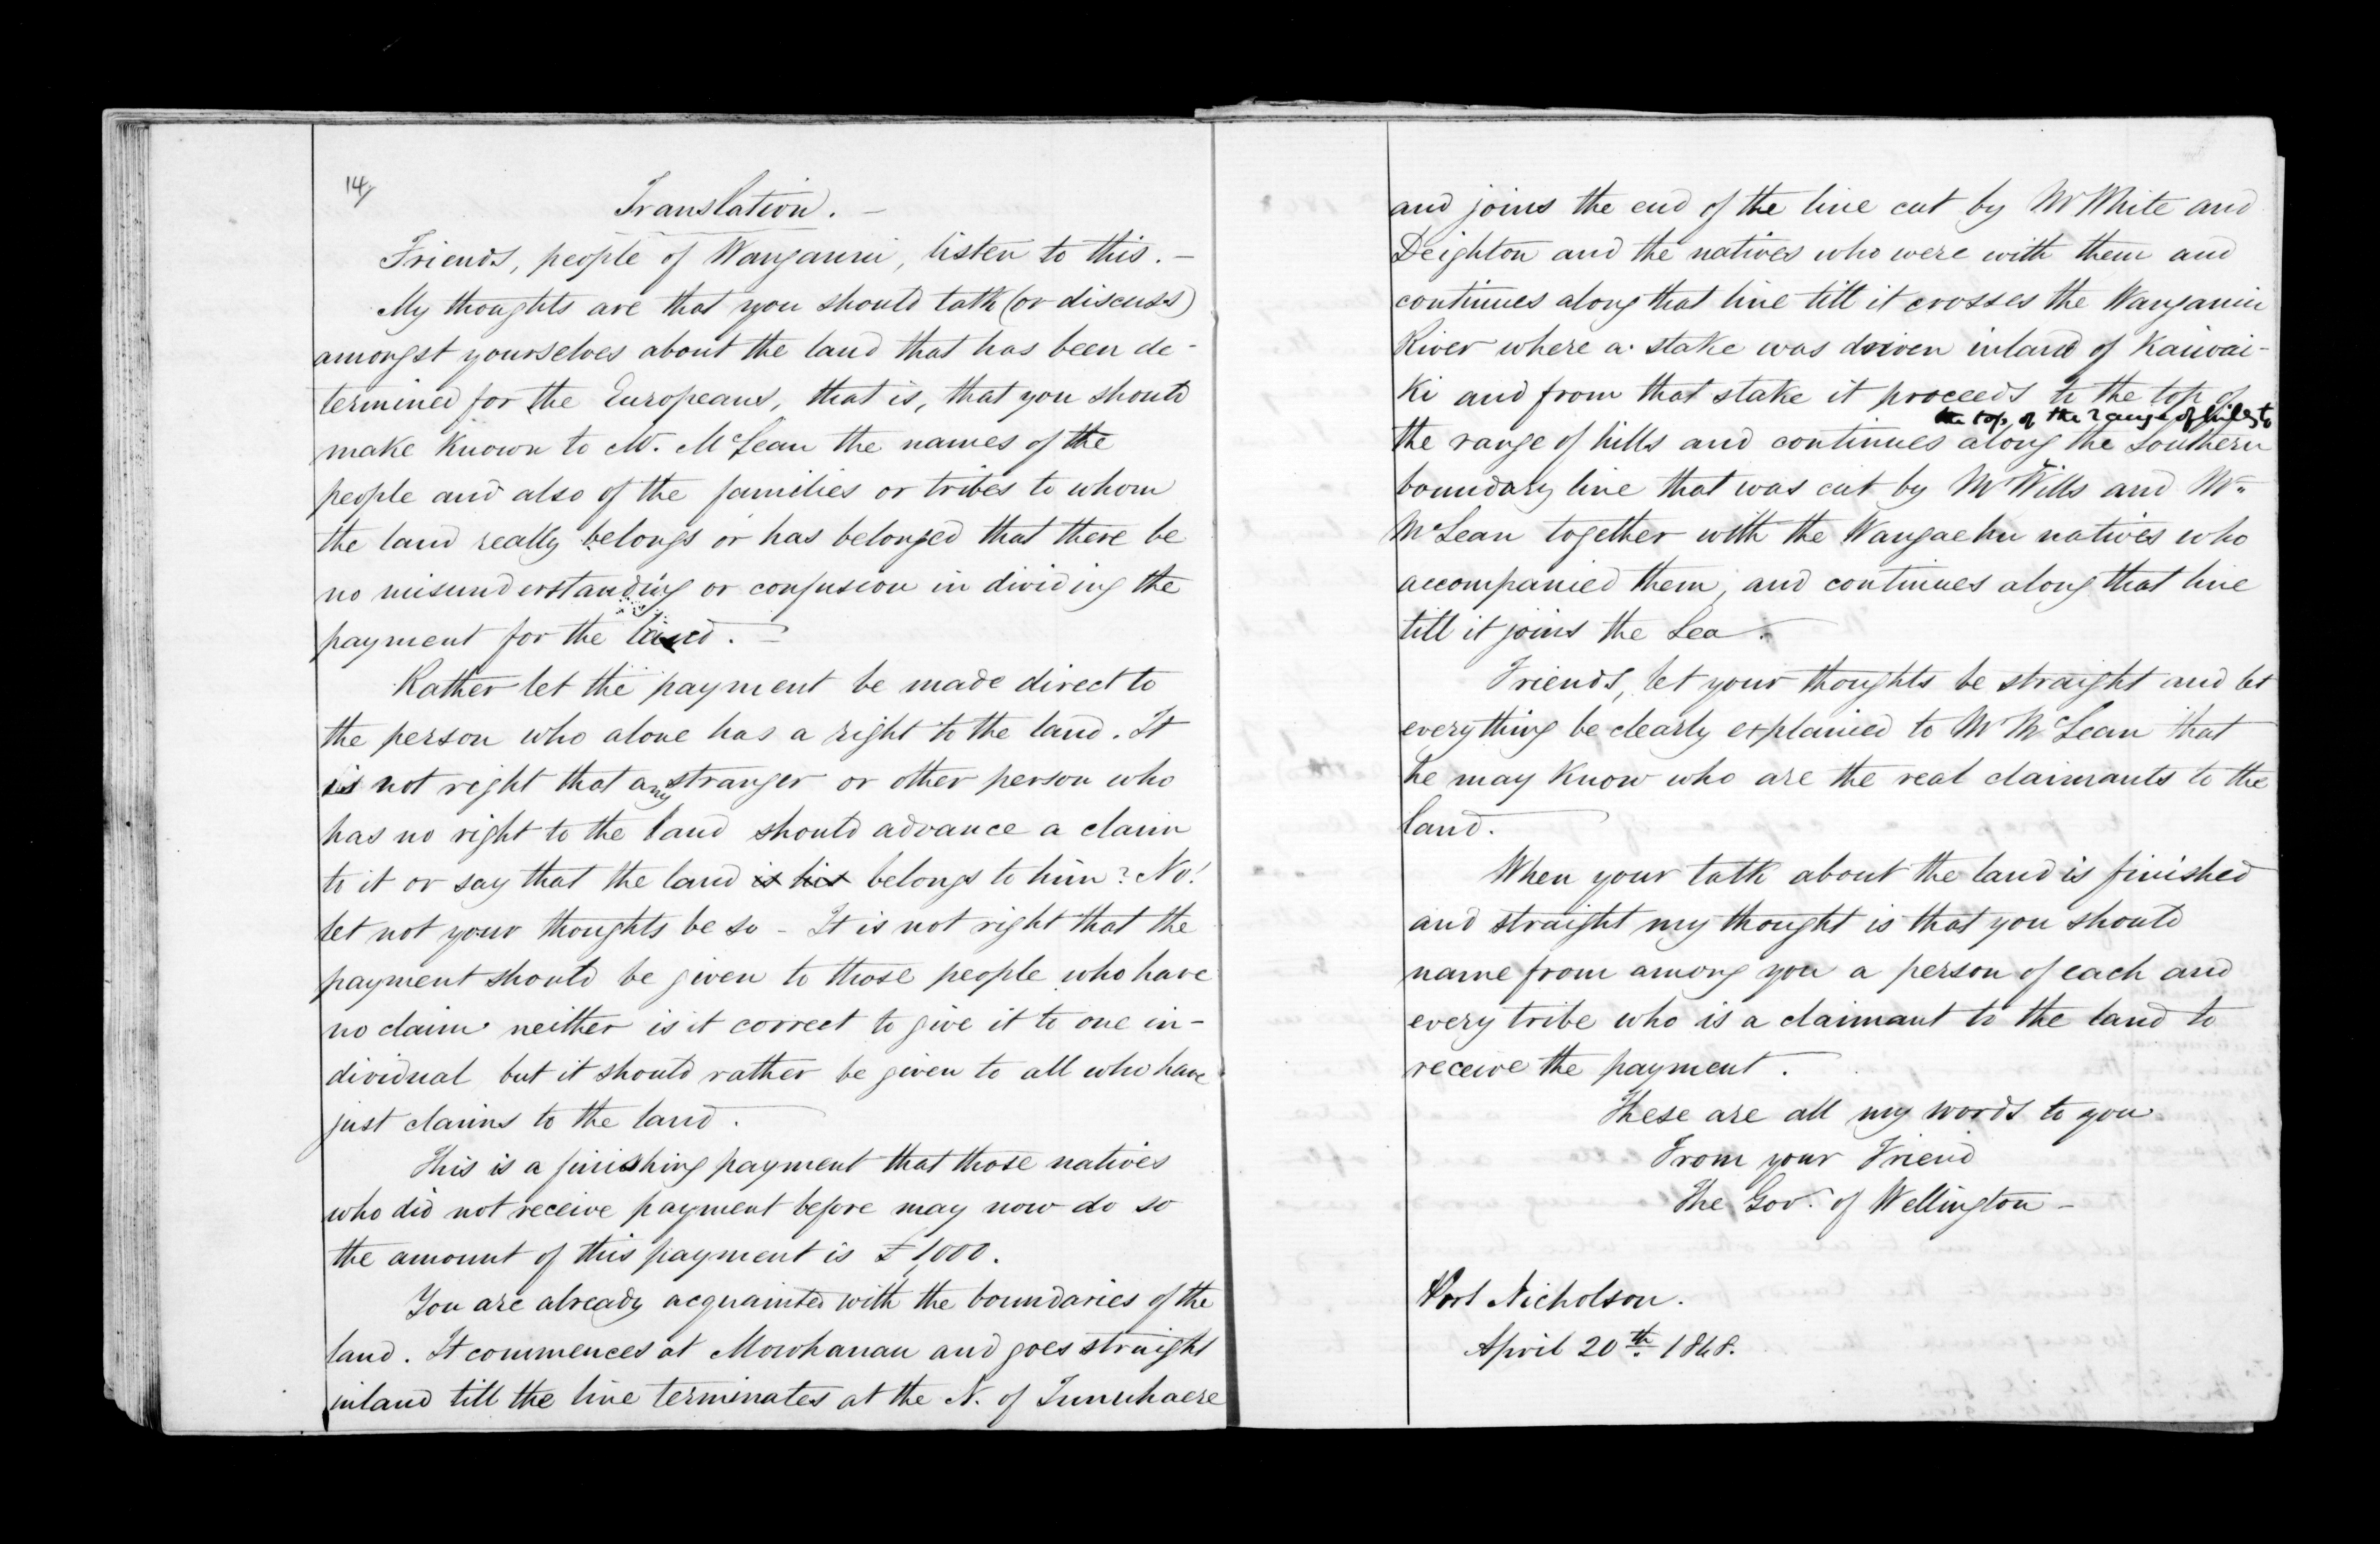 14/
Translation. —
Friends, people of Wanganui, listen to this. —
My thoughts are that you should talk (or discuss)
amongst yourselves about the land that has been de-
termined for the Europeans, that is, that you should
make known to Mr. McLean the names of the
people and also of the families or tribes to whom
the land really belongs or has belonged that there be
no misunderstanding or confusion in dividing the
payment for the land. —
Rather let the payment be made direct to
the person who alone has a right to the land. It
is not right that any stranger or other person who
has no right to the land should advance a claim
to it or say that the land is his belongs to him? No!
let not your thoughts be so - It is not right that the
payment should be given to those people who have
no claim neither is it correct to give it to one in-
dividual but it should rather be given to all who have
just claims to the land.
This is a finishing payment that those natives
who did not receive payment before may now do so
the amount of this payment is £1,000.
You are already acquainted with the boundaries of the
land. It commences at Mowhanau and goes straight
inland till the line terminates at the N. of Tunuhaere
and joins the end of the line cut by Mr White and
Deighton and the natives who were with them and
continues along that line till it crosses the Wanganui
River where a stake was driven inland of Kaiwai-
ki and from that stake it proceeds to the top of
the top of the range of hills to
the range of hills and continues along the Southern
boundary line that was cut by Mr Wills and Mr
McLean together with the Wangaehu natives who
accompanied them, and continues along that line
till it joins the Sea.
Friends, let your thoughts be straight and let
everything be clearly explained to Mr McLean that
he may know who are the real claimants to the
land.
When your talk about the land is finished
and straight my thought is that you should
name from among you a person of each and
every tribe who is a claimant to the land to
receive the payment.
These are all my words to you
From your Friend
The Gov. of Wellington -
Port Nicholson.
April 20th. 1848.